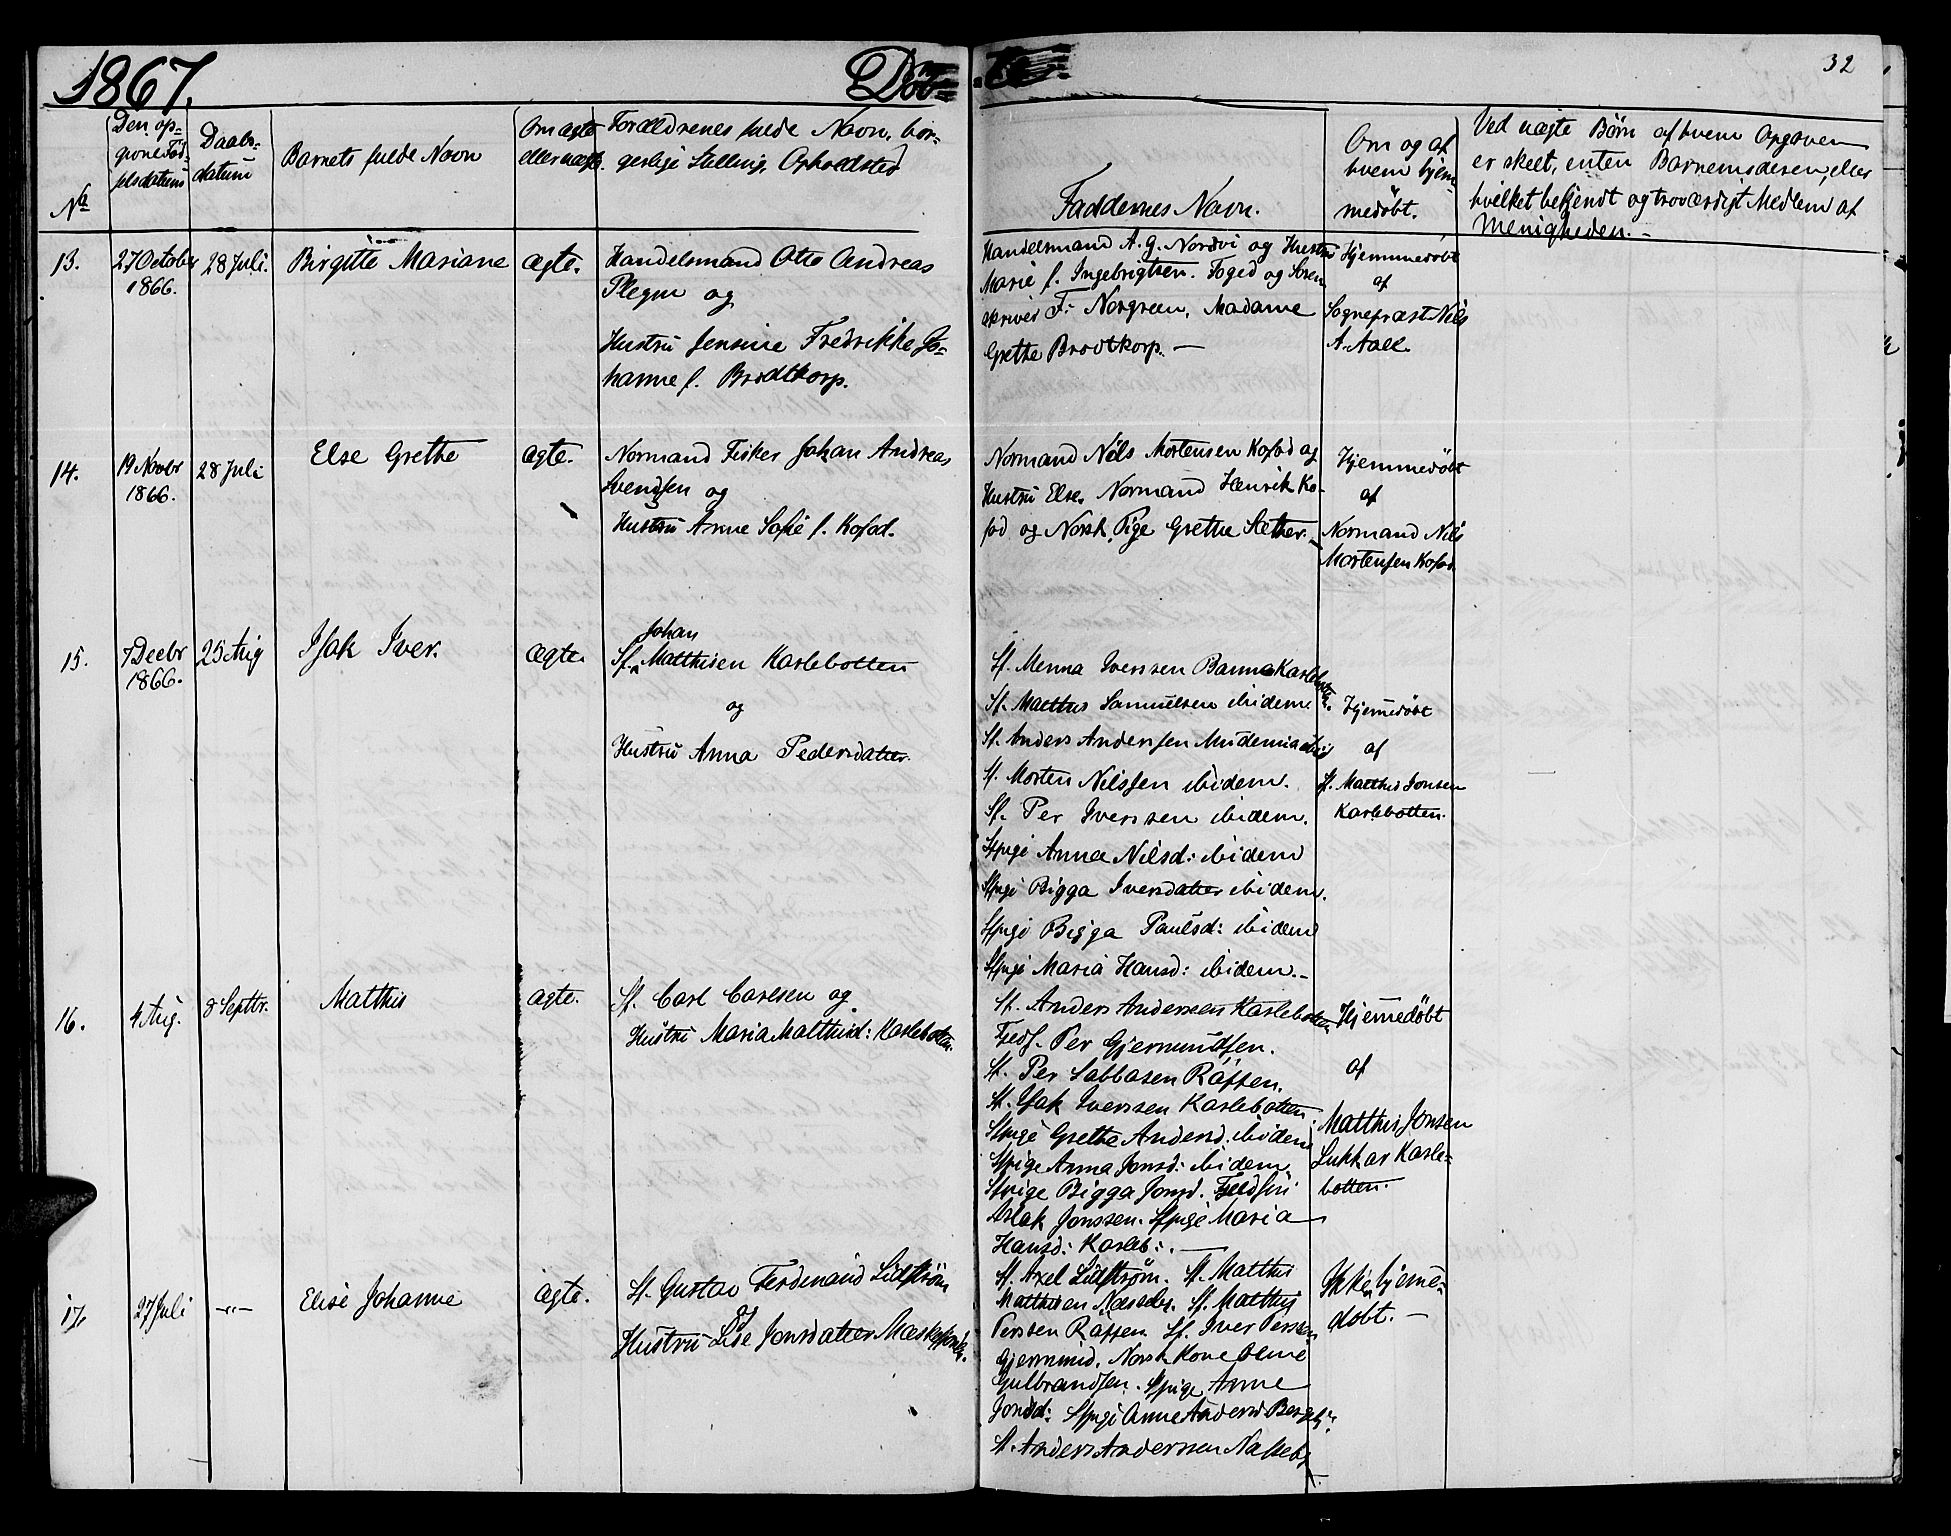 1867.
Døbte.
32
No
Den opgivne Fødselsdatum
Daabsdatum
Barnets fulde Navn
Om ægte eller uægte.
Forældrenes fulde Navn, borgerlige Stilling, Opholdsted
Faddernes Navn.
Om og af hvem hjemmedøbt.
Ved uægte Børn af hvem Opgaven
er skeet, enten Barnemoderen, eller
hvilket bekjendt og troværdigt Medlem af
Menigheden.
13.
27 October
1866.
28 Juli.
Birgitte Mariane
ægte.
Handelsmand Otto Andreas
Plegm og
Hustru Jensine Fredrikke Jo-
hanne f. Brodtkorp.
Handelsmand A. G. Nordvi og Hustru
Marie f. Ingebrigtsen. Foged og Soren
skriver F. Norgreen, Madame
Grethe Brodtkorp. —
Hjemmedøbt
af
Sognepræst Nils
A. Aall.
14.
19 Novbr
1866.
28 Juli
Else Grethe
ægte.
Normand Fisker Johan Andreas
Svendsen og
Hustru Anne Sofie f. Kofod.
Normand Nils Mortensen Kofod og
Hustru Else. Normand Henrik Ko-
fod og Norsk Pige Grethe Sæther.
Hjemmedøbt
af
Normand Nils
Mortensen Kofod.
15.
7 Decbr
1866.
25 Aug
Isak Iver.
ægte
Johan
Sf. Matthisen Karlebotten
og
Hustru Anna Pedersdatter.
Sf. Menna Iverssen Banna Karlebotten.
Sf. Matthis Samuelsen ibidem
Sf. Anders Anderssen Mudenia ibid
Sf. Morten Nilssen ibidem.
Sf. Per Iverssen ibidem.
Sfpige Anna Nilsd: ibidem
Sfpige Bigga Iversdatter ibidem.
Sfpige Bigga Paulsd: ibidem
Sfpige Maria Hansd: ibidem.-
Hjemmedøbt
af
Sf. Matthis Jonsen
Karlebotten.
16.
4 Aug.
8 Septbr.
Matthis
ægte.
Sf. Carl Carlsen og
Hustru Maria Matthisd: Karlebotten.
Sf. Anders Anderssen Karlebotten
Fjeldf. Per Gjermundsen.
Sf. Per Sabbasen Ráppen.
Sf. Isak Iverssen Karlebotten
Sfpige Grethe Andersd. ibidem
Sfpige Anna Jonsd: ibidem.
Sfpige Bigga Jonsd. Fjeldfin
Aslak Jonssen. Sfpige Maria
Hansd: Karleb:. —
Hjemmedøbt
af
Matthis Jonsen
Lukkar Karle-
botten.
17.
27 Juli
—"—
Elise Johanne
ægte.
Sf. Gustav Ferdinand Lidstrøm
og
Hustru Lise Jonsdatter
Sf. Axel Lidstrøm. Sf. Matthis
Matthisen Næsseby. Sf. Matthis
Perssen Ráppen. Sf. Iver Perssen
Gjermund. Norsk Kone Oline
Gulbrandsen. Sfpige Anne
Jonsd: Sfpige Anne Andersd Bergeby
Sf. Anders Anderssen Næsseby
Ikke hjemme-
døbt. —